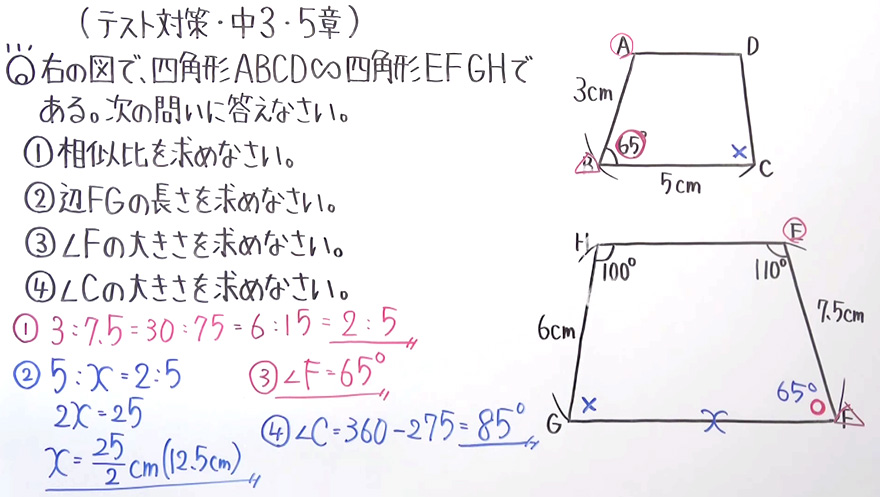 (テスト対策・中3・5章)
Q 右の図で、四角形ABCD∽四角形EFGHで
ある。次の問いに答えなさい。
①相似比を求めなさい。
②辺FGの長さを求めなさい。
③∠Fの大きさを求めなさい。
④∠Cの大きさを求めなさい。
① 3:7.5=30:75=6:15=2:5
② 5:x=2:5
2x=25
x=25/2cm(12.5cm)
③∠F=65°
④∠C=360-275=85°
A
D
3cm
65°
×
B
C
5cm
H
E
100°
110°
6cm
7.5cm
65°
×
G
x
F